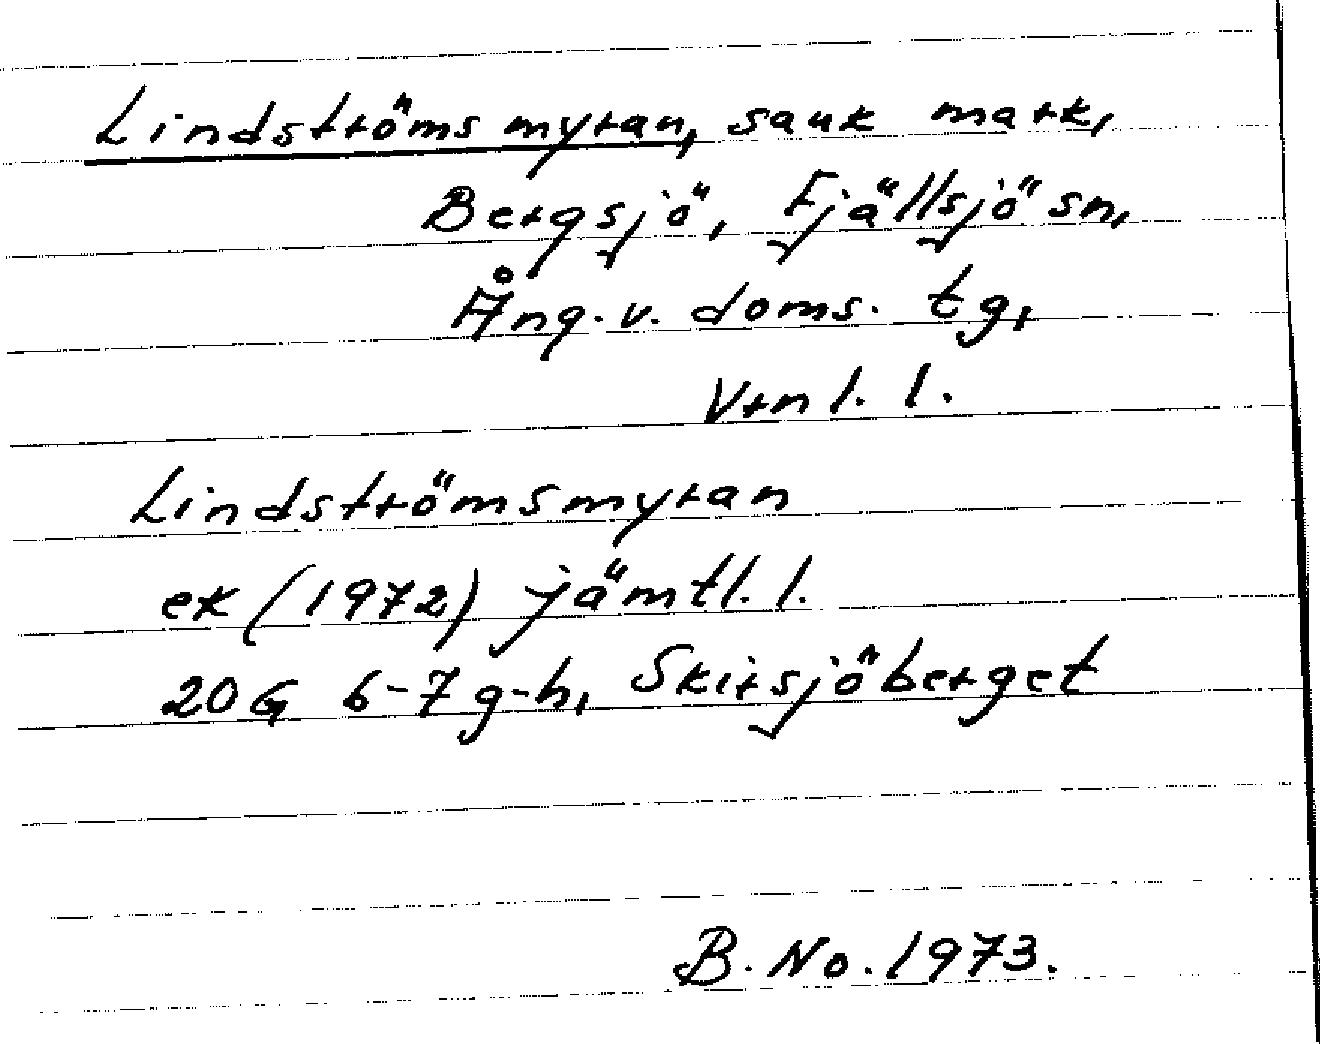 Lindströmsmyran, sank mark,
Bergsjö, Fjällsjö sn,
Ång. v. doms. tg,
Vrnl. l.
Lindströmsmyran
ek (1972) jämtl. l.
20G 6-7g-h, Skirsjöberget
B. No. 1973.